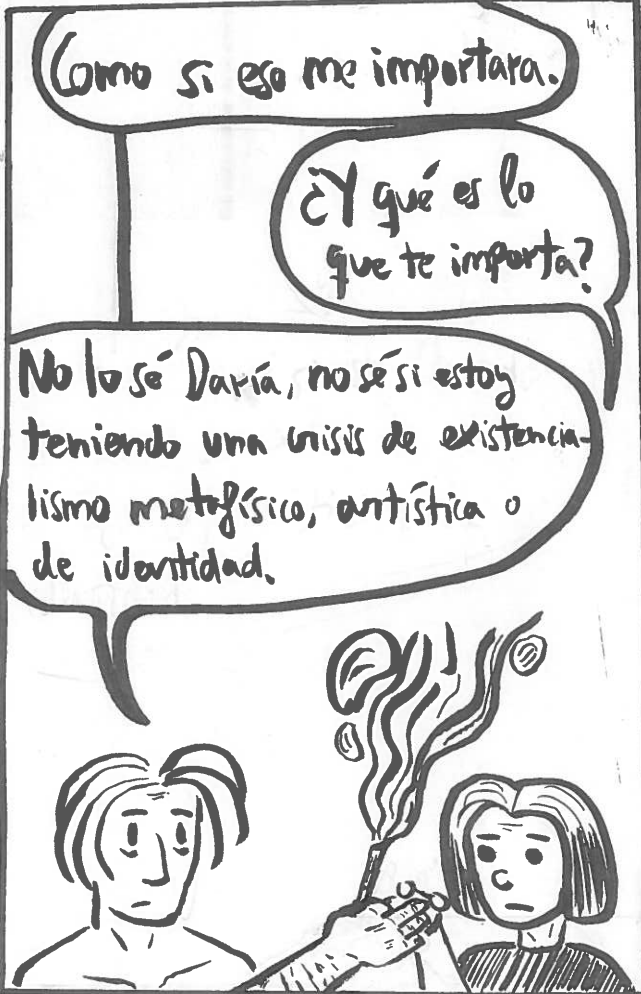 Como si eso me importara.
¿Y qué es lo
que te importa?
No lo sé Daría, no sé si estoy
teniendo una crisis de existencia-
lismo metafísico, artística o
de identidad.